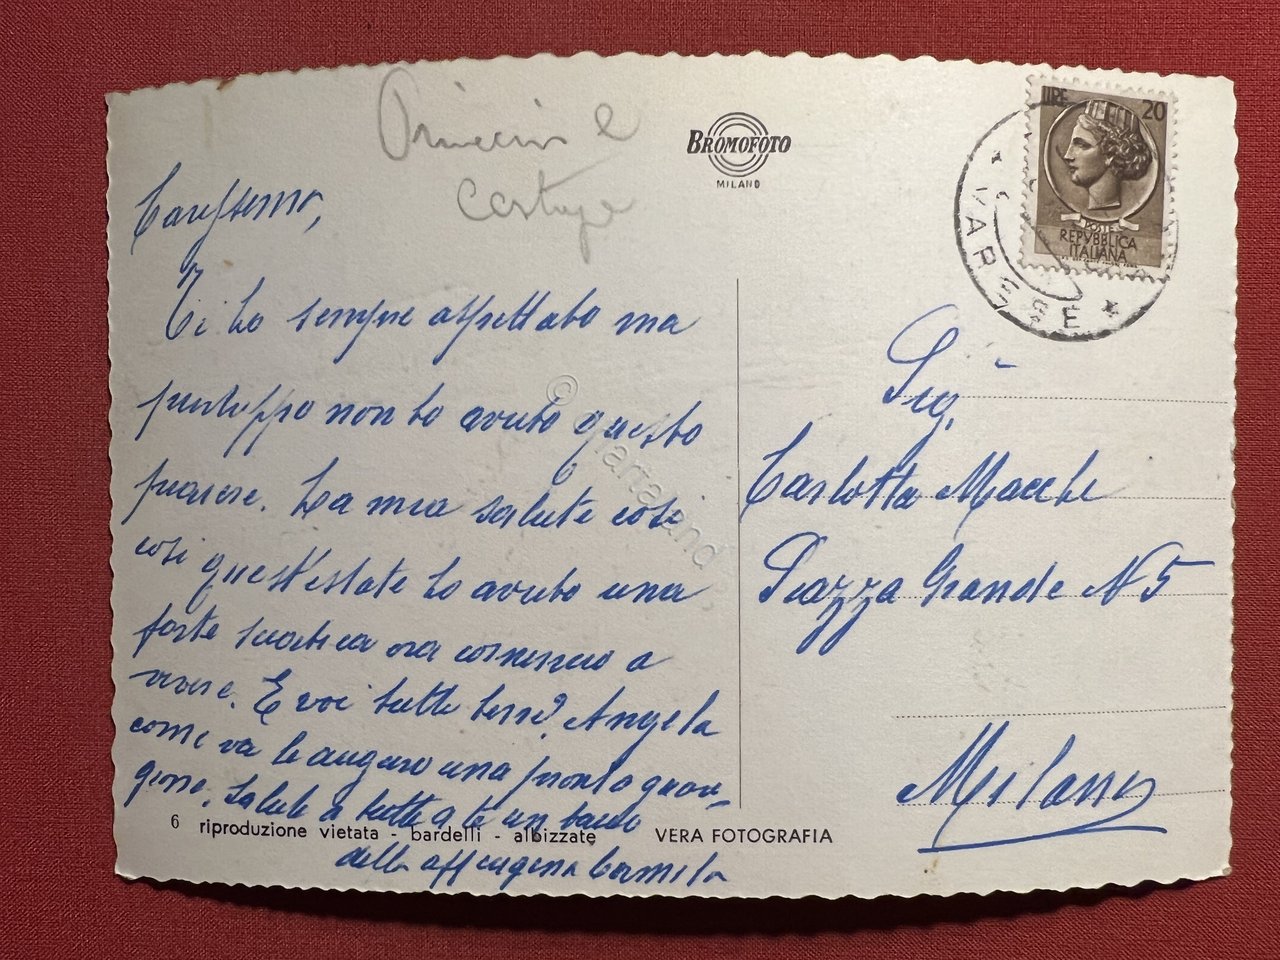 BROMOFOTO
MILANO
LIRE 20
POSTE
REPVBBLICA
ITALIANA
VARESE
Carissima,
Ti ho sempre aspettato ma
purtroppo non ho avuto questo
piacere. La mia salute così
così quest'estate ho avuto una
forte sciatica ora comincio a
vivere. E voi tutti bene? Angela
come va le auguro una pronta guari-
gione. Saluti a tutti a te un bacio
dalla aff cugina Carmela
Sig.
Carlotta Macchi
Piazza Grande N 5
Milano
6 riproduzione vietata - bardelli - albizzate
VERA FOTOGRAFIA